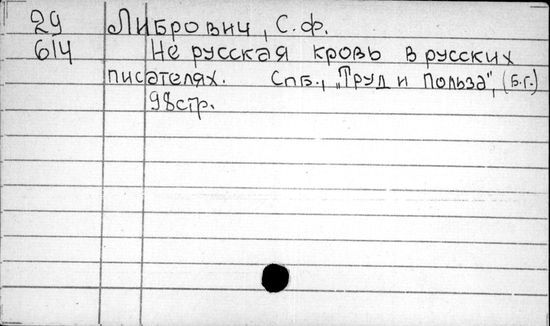 29 Либрович, С.Ф.
614 Не русская кровь в русских
писателях. Спб., „Труд и Польза", (б.г.)
98стр.